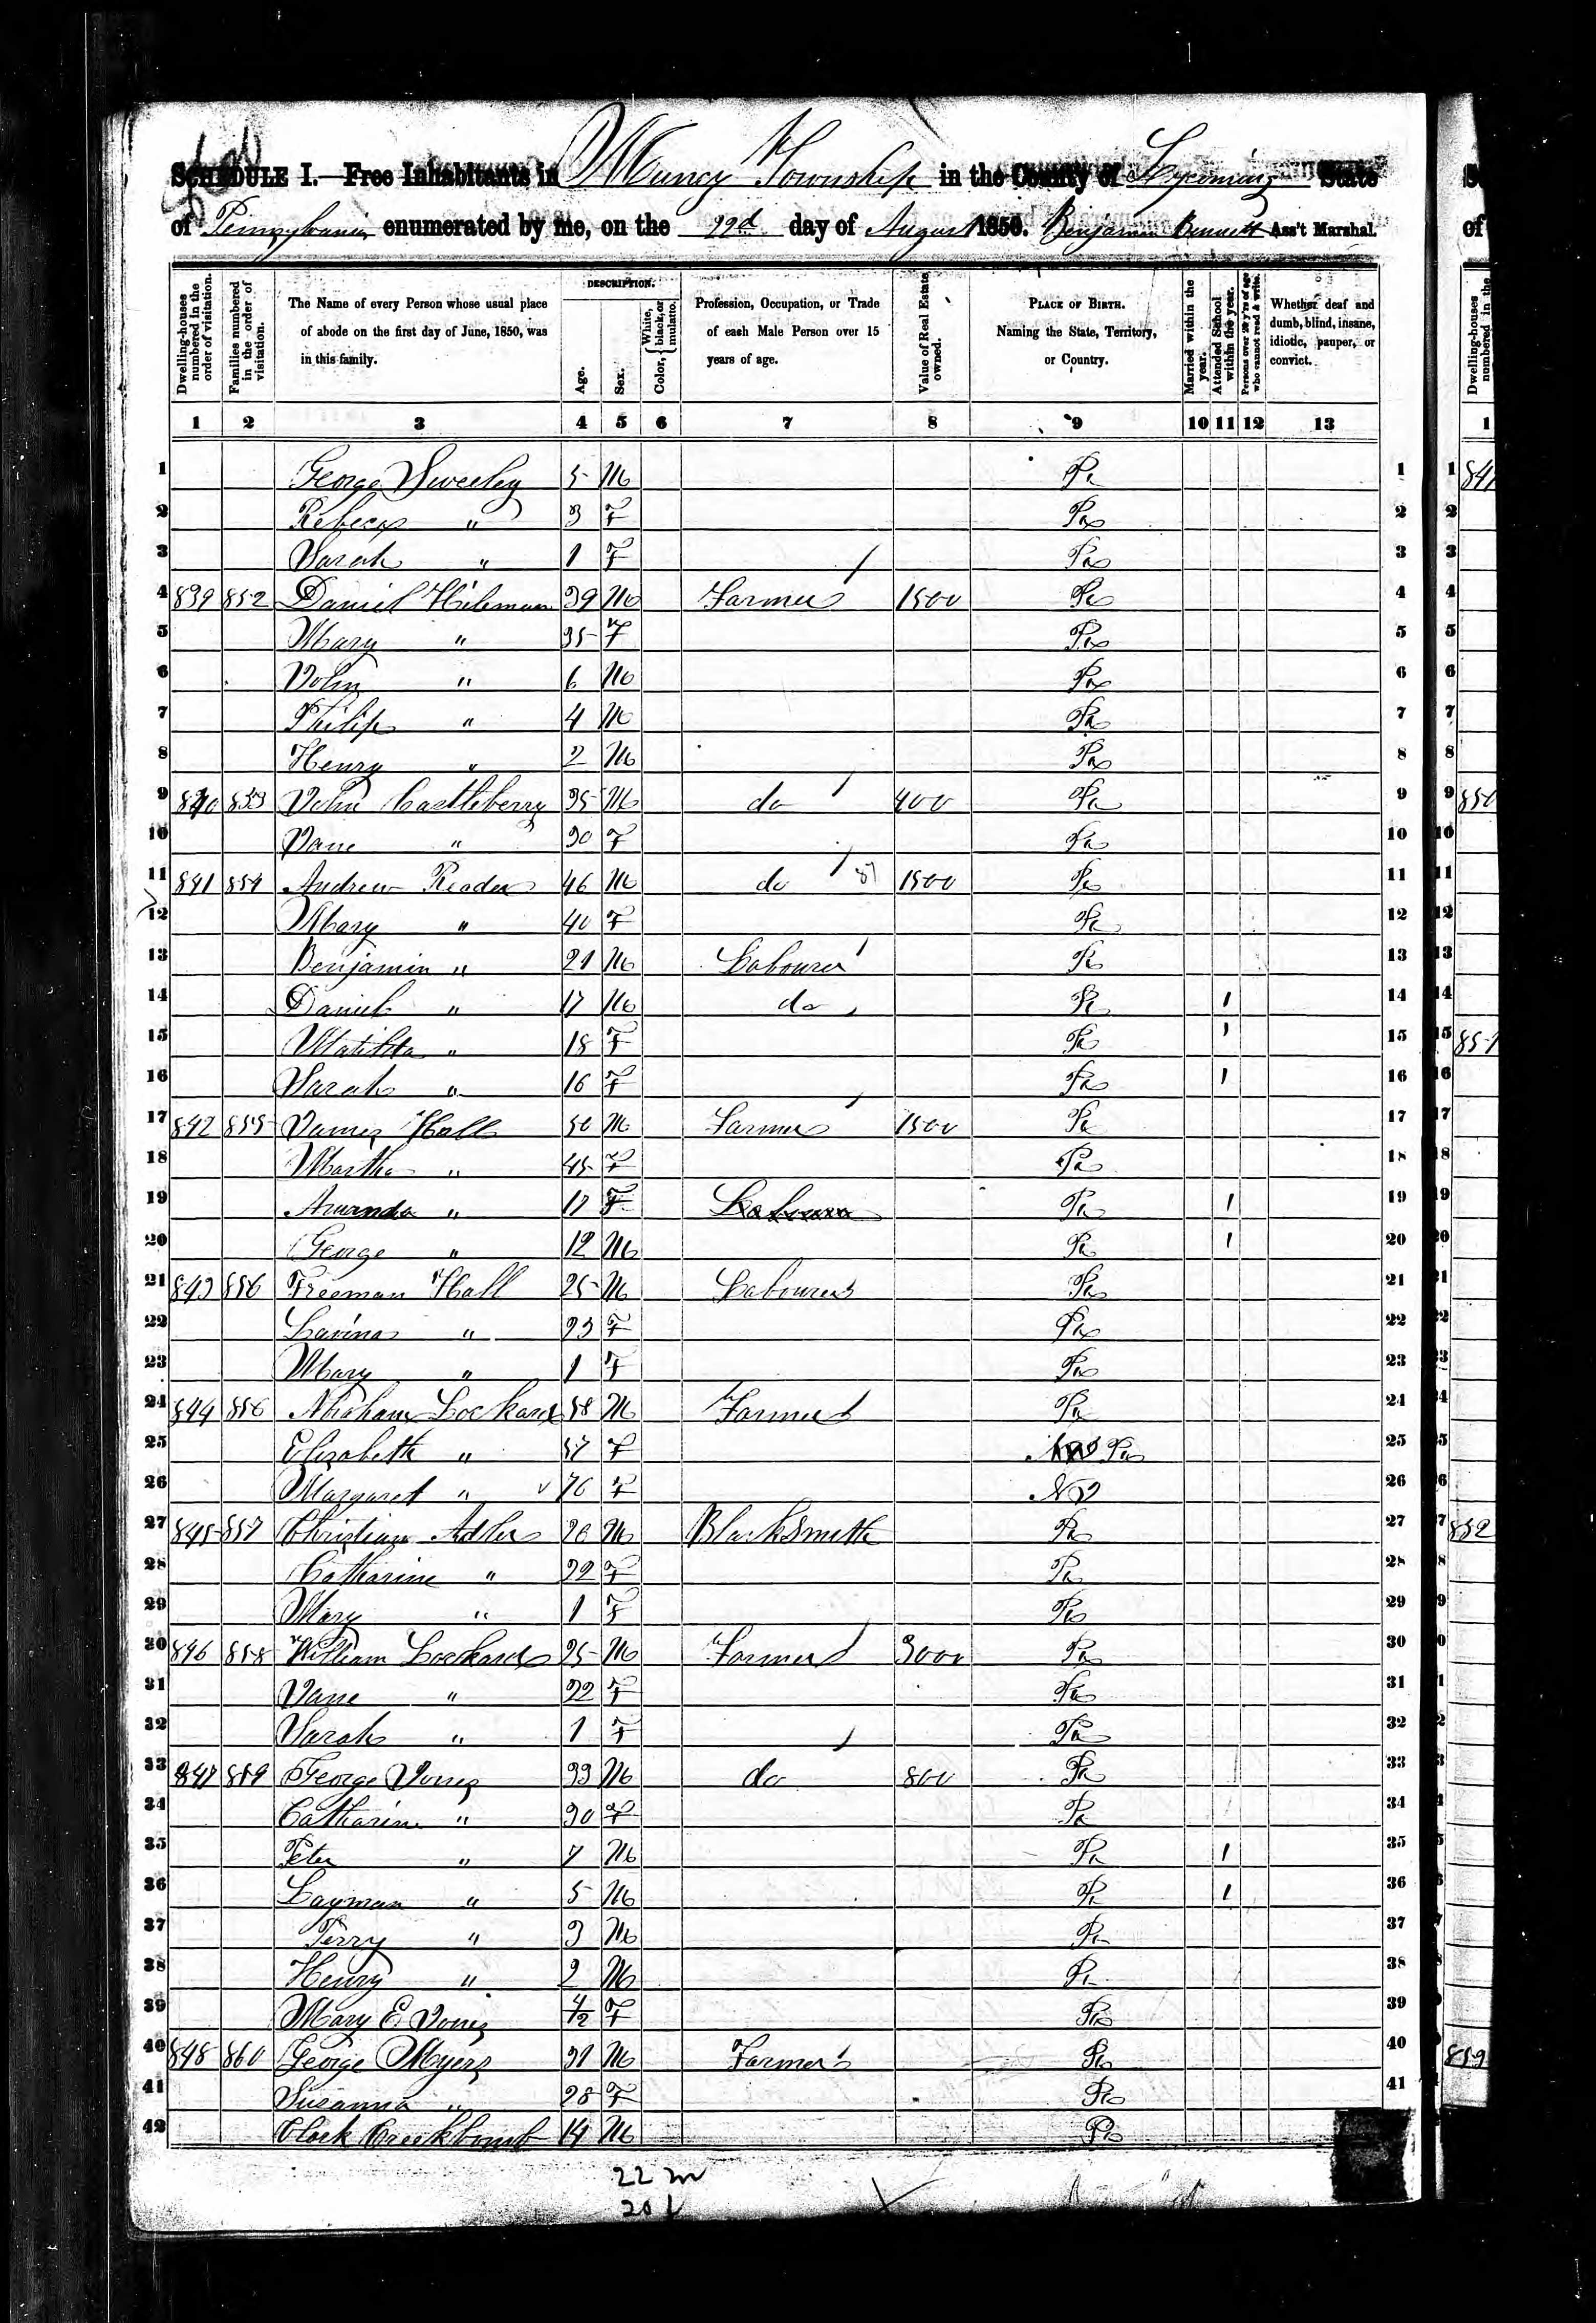 SCHEDULE I.—Free Inhabitants in Muncy Township in the County of Lycoming State
of Pennsylvania enumerated by me, on the 22d day of August 1850. Benjamin Bennett Ass't Marshal.
Dwelling-houses numbered in the order of visitation.
Families numbered in the order of visitation.
The Name of every Person whose usual place of abode on the first day of June, 1850, was in this family.
DESCRIPTION.
Age.
Sex.
Color, { White, black, or mulatto.
Profession, Occupation, or Trade of each Male Person over 15 years of age.
Value of Real Estate owned.
PLACE OF BIRTH. Naming the State, Territory, or Country.
Married within the year.
Attended School within the year.
Persons over 20 y'rs of age who cannot read & write.
Whether deaf and dumb, blind, insane, idiotic, pauper, or convict.
1 2 3 4 5 6 7 8 9 10 11 12 13
1 George Sweeley 5 M Pa 1
2 Rebeca " 3 F Pa 2
3 Sarah " 1 F Pa 3
4 839 852 Daniel Hileman 39 M Farmer 1500 Pa 4
5 Mary " 35 F Pa 5
6 John " 6 M Pa 6
7 Philip " 4 M Pa 7
8 Henry " 2 M Pa 8
9 840 853 John Castleberry 35 M do 400 Pa 9
10 Jane " 30 F Pa 10
11 841 854 Andrew Reader 46 M do 1500 Pa 11
12 Mary " 40 F Pa 12
13 Benjamin " 21 M Labourer Pa 13
14 Daniel " 17 M do Pa 1 14
15 Matilda " 18 F Pa 1 15
16 Sarah " 16 F Pa 1 16
17 842 855 James Hall 50 M Farmer 1500 Pa 17
18 Martha " 45 F Pa 18
19 Amanda " 17 F Labourer Pa 1 19
20 George " 12 M Pa 1 20
21 843 856 Freeman Hall 25 M Labourer Pa 21
22 Lavina " 23 F Pa 22
23 Mary " 1 F Pa 23
24 844 856 Abraham Lockard 58 M Farmer Pa 24
25 Elizabeth " 57 F Pa 25
26 Margaret " 76 F NJ 26
27 845 857 Christian Adler 26 M BlackSmith Pa 27
28 Catharine " 22 F Pa 28
29 Mary " 1 F Pa 29
30 846 858 William Lockard 25 M Farmer 3000 Pa 30
31 Jane " 22 F Pa 31
32 Sarah " 1 F Pa 32
33 847 859 George Jones 33 M do 800 Pa 33
34 Catharine " 30 F Pa 34
35 Peter " 7 M Pa 1 35
36 Layman " 5 M Pa 1 36
37 Perry " 3 M Pa 37
38 Henry " 2 M Pa 38
39 Mary E Jones 4/12 F Pa 39
40 848 860 George Myers 31 M Farmer Pa 40
41 Susanna " 28 F Pa 41
42 Clark 14 M Pa
22 m
20 f